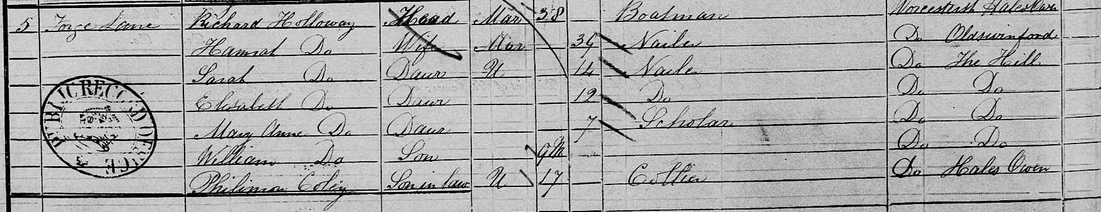 5 Forge Lane Richard Holloway Head Mar 38 Boatman Worcestersh Hales Owen
Hannah Do Wife Mar 34 Nailer Do Oldswinford
Sarah Do Daur U 14 Nailer Do The Hill
Elizabeth Do Daur 12 Do Do Do
Mary Anne Do Daur 7 Scholar Do Do
William Do Son 9M Do Do
Philimon Coley Son in law U 17 Collier Do Hales Owen
PUBLIC RECORD OFFICE